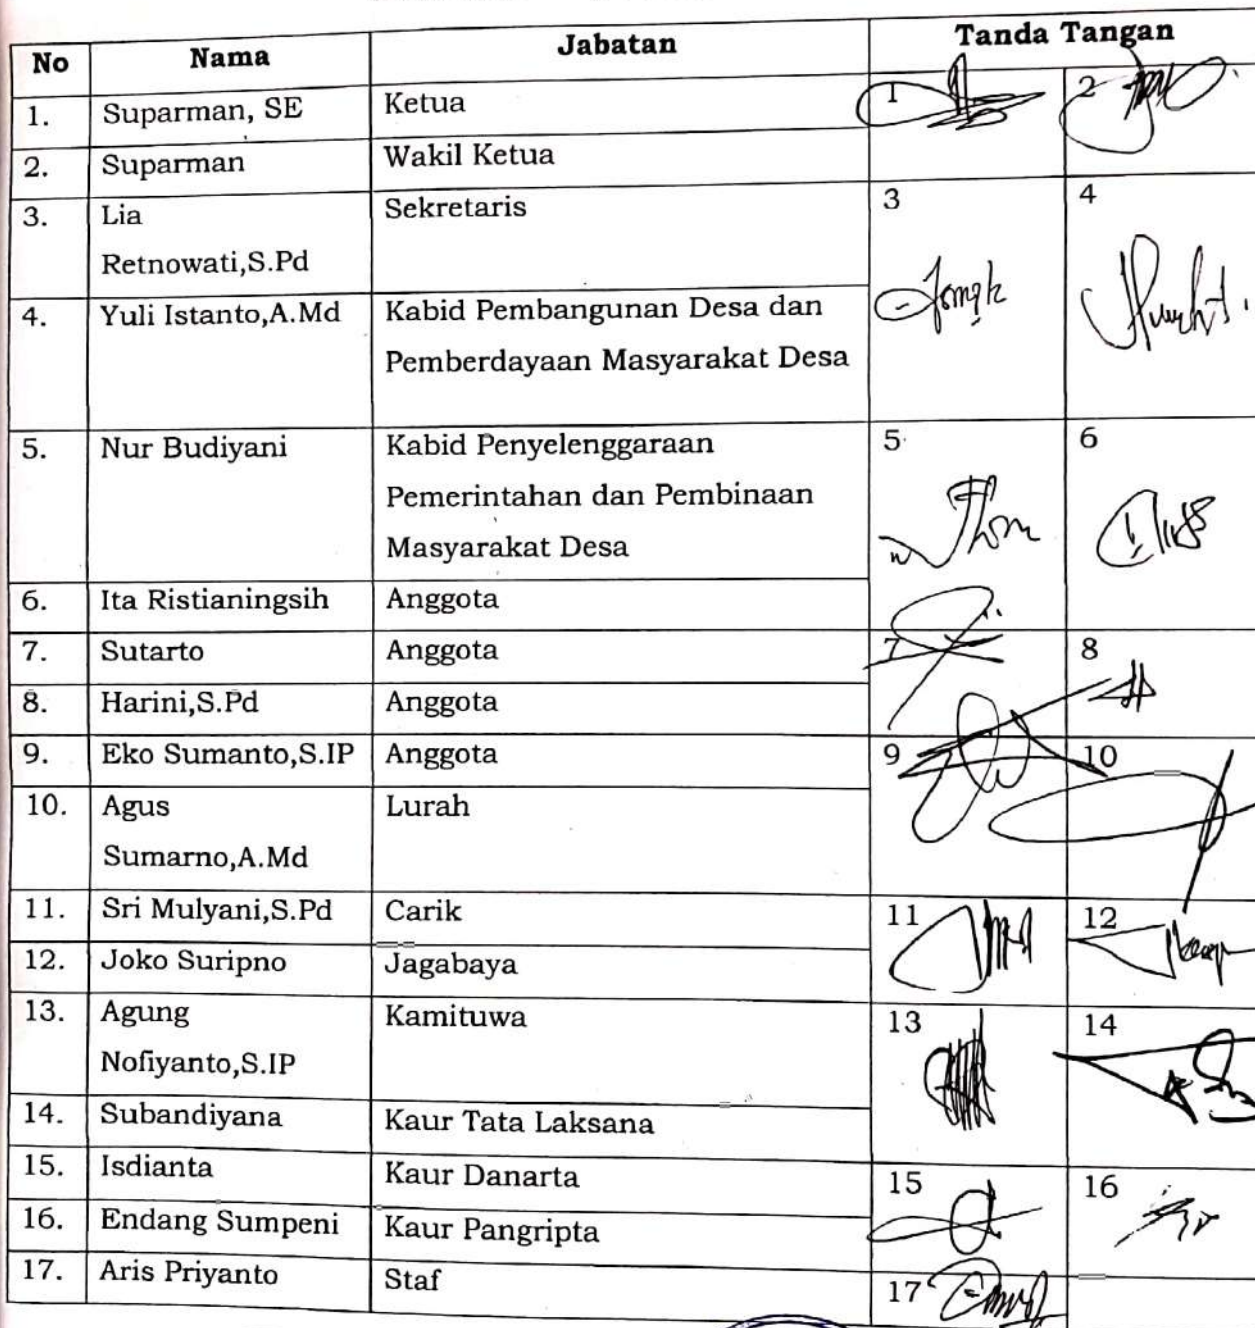 No Nama Jabatan Tanda Tangan
1. Suparman, SE Ketua 1 2
2. Suparman Wakil Ketua
3. Lia Sekretaris 3 4
Retnowati,S.Pd
4. Yuli Istanto,A.Md Kabid Pembangunan Desa dan
Pemberdayaan Masyarakat Desa
5. Nur Budiyani Kabid Penyelenggaraan 5 6
Pemerintahan dan Pembinaan
Masyarakat Desa
6. Ita Ristianingsih Anggota
7. Sutarto Anggota 7 8
8. Harini,S.Pd Anggota
9. Eko Sumanto,S.IP Anggota 9 10
10. Agus Lurah
Sumarno,A.Md
11. Sri Mulyani,S.Pd Carik 11 12
12. Joko Suripno Jagabaya
13. Agung Kamituwa 13 14
Nofiyanto,S.IP
14. Subandiyana Kaur Tata Laksana
15. Isdianta Kaur Danarta 15 16
16. Endang Sumpeni Kaur Pangripta
17. Aris Priyanto Staf 17